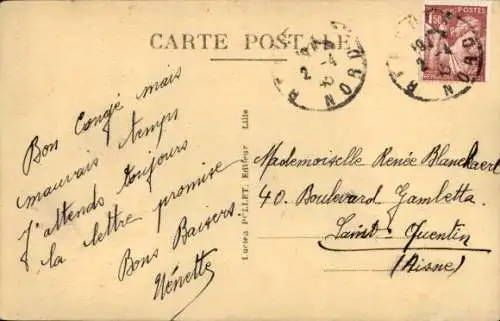 CARTE POSTALE
Bon Congé mais
mauvais temps
J'attends toujours
la lettre promise
Bons Baisers.
Nénette
Lucien POLLET, Editeur Lille
1F50 POSTES
18 H
2 - 4
NORD
18 H
2 - 4
NORD
Mademoiselle Renée Blanckaert
40. Boulevard Gambetta
Saint-Quentin
(Aisne)